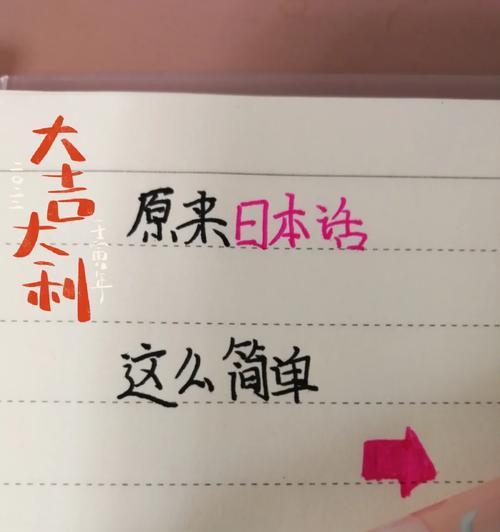 大吉
大利
二〇二二
壬寅年
原来日本话
这么简单